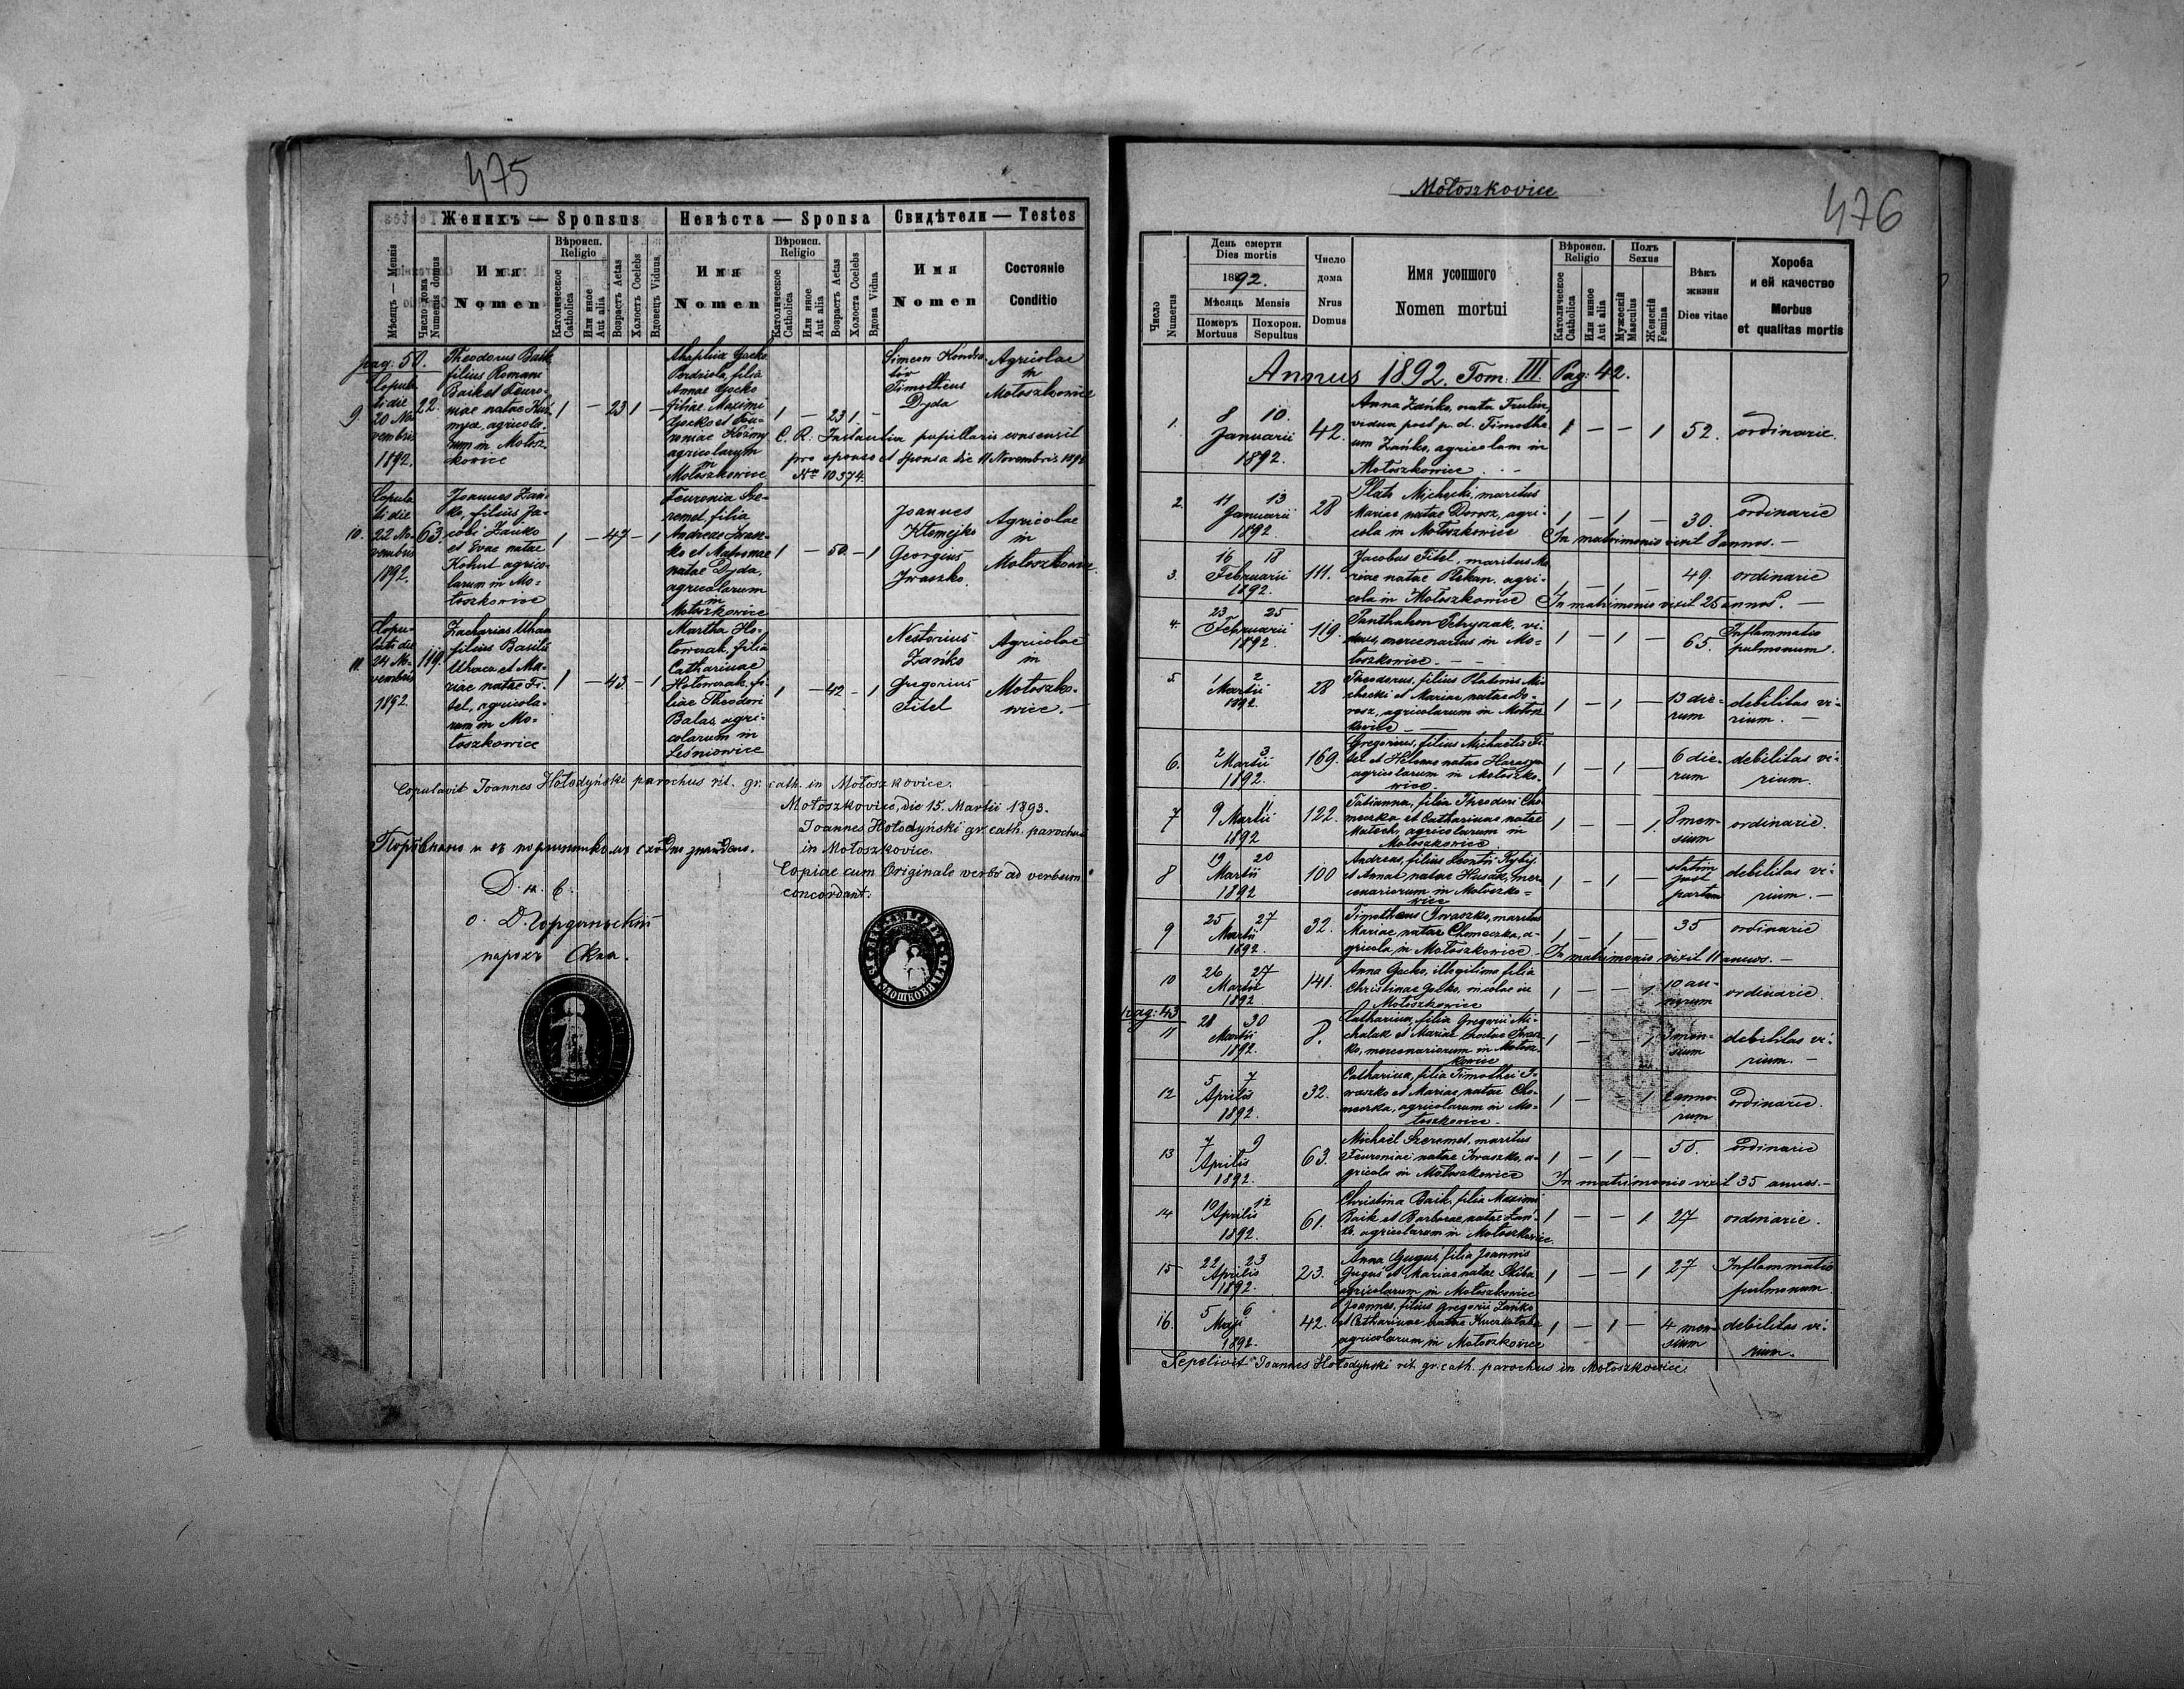 475
Женихъ — Sponsus
Невѣста — Sponsa
Свидѣтели — Testes
Мѣсяцъ — Mensis
Число дома
Numerus domus
Имя
Nomen
Вѣроисп.
Religio
Католическое
Catholica
Или иное
Aut alia
Возрастъ Aetas
Холостъ Coelebs
Вдовецъ Viduus
Имя
Nomen
Вѣроисп.
Religio
Католическое
Catholica
Или иное
Aut alia
Возрастъ Aetas
Холоста Coelebs
Вдова Vidua
Имя
Nomen
Состояніе
Conditio
pag: 50.
9.
Copula
ti die
20 No
vembris
1892.
22.
Theodorus Baik
filius Romani
Baik et Feuro-
niae natae
agricola
rum in Motosz
kowice
1 — 23 1 —
filia
Annae Gocko
filiae Maximi
Gocko et Feu-
roniae
agricolarum
in
Motoszkowice
1 — 23 1 -
Simeon
Timotheus
Dyda
Agricolae
in
Motoszkowice
C. R. Instantia pupillaris consensit
pro sponso et sponsa die 11 Novembris 1892
Nr 10374.
10.
Copula
ti die
22 No-
vembris
1892.
63.
Joannes Zań-
ko, filius Ja-
cobi Zańko
et Evae natae
Kohut agrico-
larum in Mo-
toszkowice
1 — 47 — 1
Feuronia Sze-
remet, filia
Andreae Iwasz-
ko et Matronae
natae Dyda,
agricolarum
in
Motoszkowice
1 — 50. — 1
Joannes
Kłomejko
Georgius
Iwaszko.
Agricolae
in
Motoszkowice.
11.
Copu-
lati die
24 No-
vembris
1892.
119.
Zacharias Uhacz
filius Basilii
Uhacz et Ma-
riae natae Fi-
tel, agricola-
rum in Mo-
toszkowice
1 — 43 — 1
Martha Ho-
towczak, filia
Catharinae
Hotowczak fi-
liae Theodori
Balas, agri-
colarum in
Leśniowice
1 — 42 — 1
Nestorius
Zańko
Gregorius
Fitel
Agricolae
in
Motoszko-
wice. —
Copulavit Joannes Hołodyński parochus rit. gr. cath. in Mołoszkovice.
Mołoszkovice, die 15. Martii 1893.
Joannes Hołodyński gr. cath. parochus
in Mołoszkovice.
Порôвнано и въ
Copiae cum Originale verbo ad verbum
concordant.
парохъ
Mołoszkovice
476
Число
Numerus
День смерти
Dies mortis
1892.
Мѣсяць Mensis
Померъ
Mortuus
Похорон.
Sepultus
Число
дома
Nrus
Domus
Имя усопшого
Nomen mortui
Вѣроисп.
Religio
Католическое
Catholica
Или инное
Aut alia
Полъ
Sexus
Мужескій
Masculus
Женскій
Femina
Вѣкъ
жизни
Dies vitae
Хороба
и ей качество
Morbus
et qualitas mortis
Annus 1892. Tom: III. Pag: 42.
1.
8 10.
Januarii
1892.
42.
Anna Zańko, nata
vidua post p. d. Timothe
um Zańko, agricolam in
Motoszkowice. - -
1 — — 1
52.
ordinarie.
2.
11 13
Januarii
1892
28
Plato Michocki, maritus
Mariae natae Dorosz, agri-
cola in Motoszkowice
1 — 1 —
30.
ordinarie
In matrimonio vixit 8 annos. —
3.
16 18
Februarii
1892.
111.
Jacobus Fitel, maritus Ma
riae natae agri-
cola in Motoszkowice
1 — 1 —
49.
ordinarie
In matrimonio vixit 25 annos. —
4.
23 25
Februarii
1892.
119.
vi-
duus, mercenarius in Mo-
toszkowice. —
1 — 1 —
65.
Inflammatio
pulmonum.
5
1 2
Martii
1892.
28
Theodorus, filius Platonis Mi-
chocki et Mariae, natae Do-
rosz, agricolarum in Motosz
kowice
1 — 1 —
13 die-
rum
debilitas vi-
rium. —
6.
2 3
Martii
1892.
169.
Gregorius, filius Michaelis Fi-
tel et Helenae natae
agricolarum in Motoszko-
wice.
1 — 1 —
6 die-
rum
debilitas vi-
rium.
7
9 11
Martii
1892
122.
Tatianna, filia Theodori Cho
meczka, et Catharinae natae
agricolarum in
Motoszkowice
1 — — 1.
8 men-
sium
ordinarie.
8
19 20
Martii
1892
100
Andreas, filius Leontii
et Annae natae Husak, mer-
cenariorum in Motoszko-
wice
1 — 1 —
statim
post
partum
debilitas vi-
rium. —
9
25 27
Martii
1892.
32.
Timotheus Iwaszko, maritus
Mariae natae Chomeczka, a-
gricola in Motoszkowice.
1 — 1 —
35
ordinarie
In matrimonio vixit 11 annos. —
10
26 27
Martii
1892.
141.
Anna Gocko, illegitima filia
Christinae Gocko, incolae in
Motoszkowice
1 — — 1
10 an-
norum
ordinarie.
pag: 43
11
28 30
Martii
1892.
8.
Catharina, filia Gregorii Mi-
chalak et Mariae natae Iwasz-
ko, mercenariorum in Motosz-
kowice
1 — — 1
3 men-
sium
debilitas vi-
rium. —
12
5 7
Aprilis
1892.
32.
Catharina, filia Timothei I-
waszko et Mariae natae Cho-
meczka, agricolarum in Mo-
toszkowice.
1 — — 1
anno-
rum
ordinarie.
13
7 9
Aprilis
1892.
63.
Michael Szeremet, maritus
Feuroniae natae Iwaszko, a-
gricola in Motoszkowice
1 — 1 —
55.
ordinarie
In matrimonio vixit 35 annos. —
14
10 12
Aprilis
1892.
61.
Christina Baik, filia Maximi
Baik et Barbarae natae Zań-
ko agricolarum in Motoszkowice.
1 — — 1
27
ordinarie.
15
22 23
Aprilis
1892.
23.
Anna Guguś, filia Joannis
Guguś et Mariae natae Skiba
agricolarum in Motoszkowice
1 — — 1
27
Inflammatio
pulmonum.
16.
5 6
Maji
1892.
42.
Joannes, filius Gregorii Zańko
et Catharinae natae
agricolarum in Motoszkowice
1 — 1 —
4 men-
sium
debilitas vi-
rium.
Sepelivit Joannes Hołodyński rit. gr. cath. parochus in Mołoszkovice.